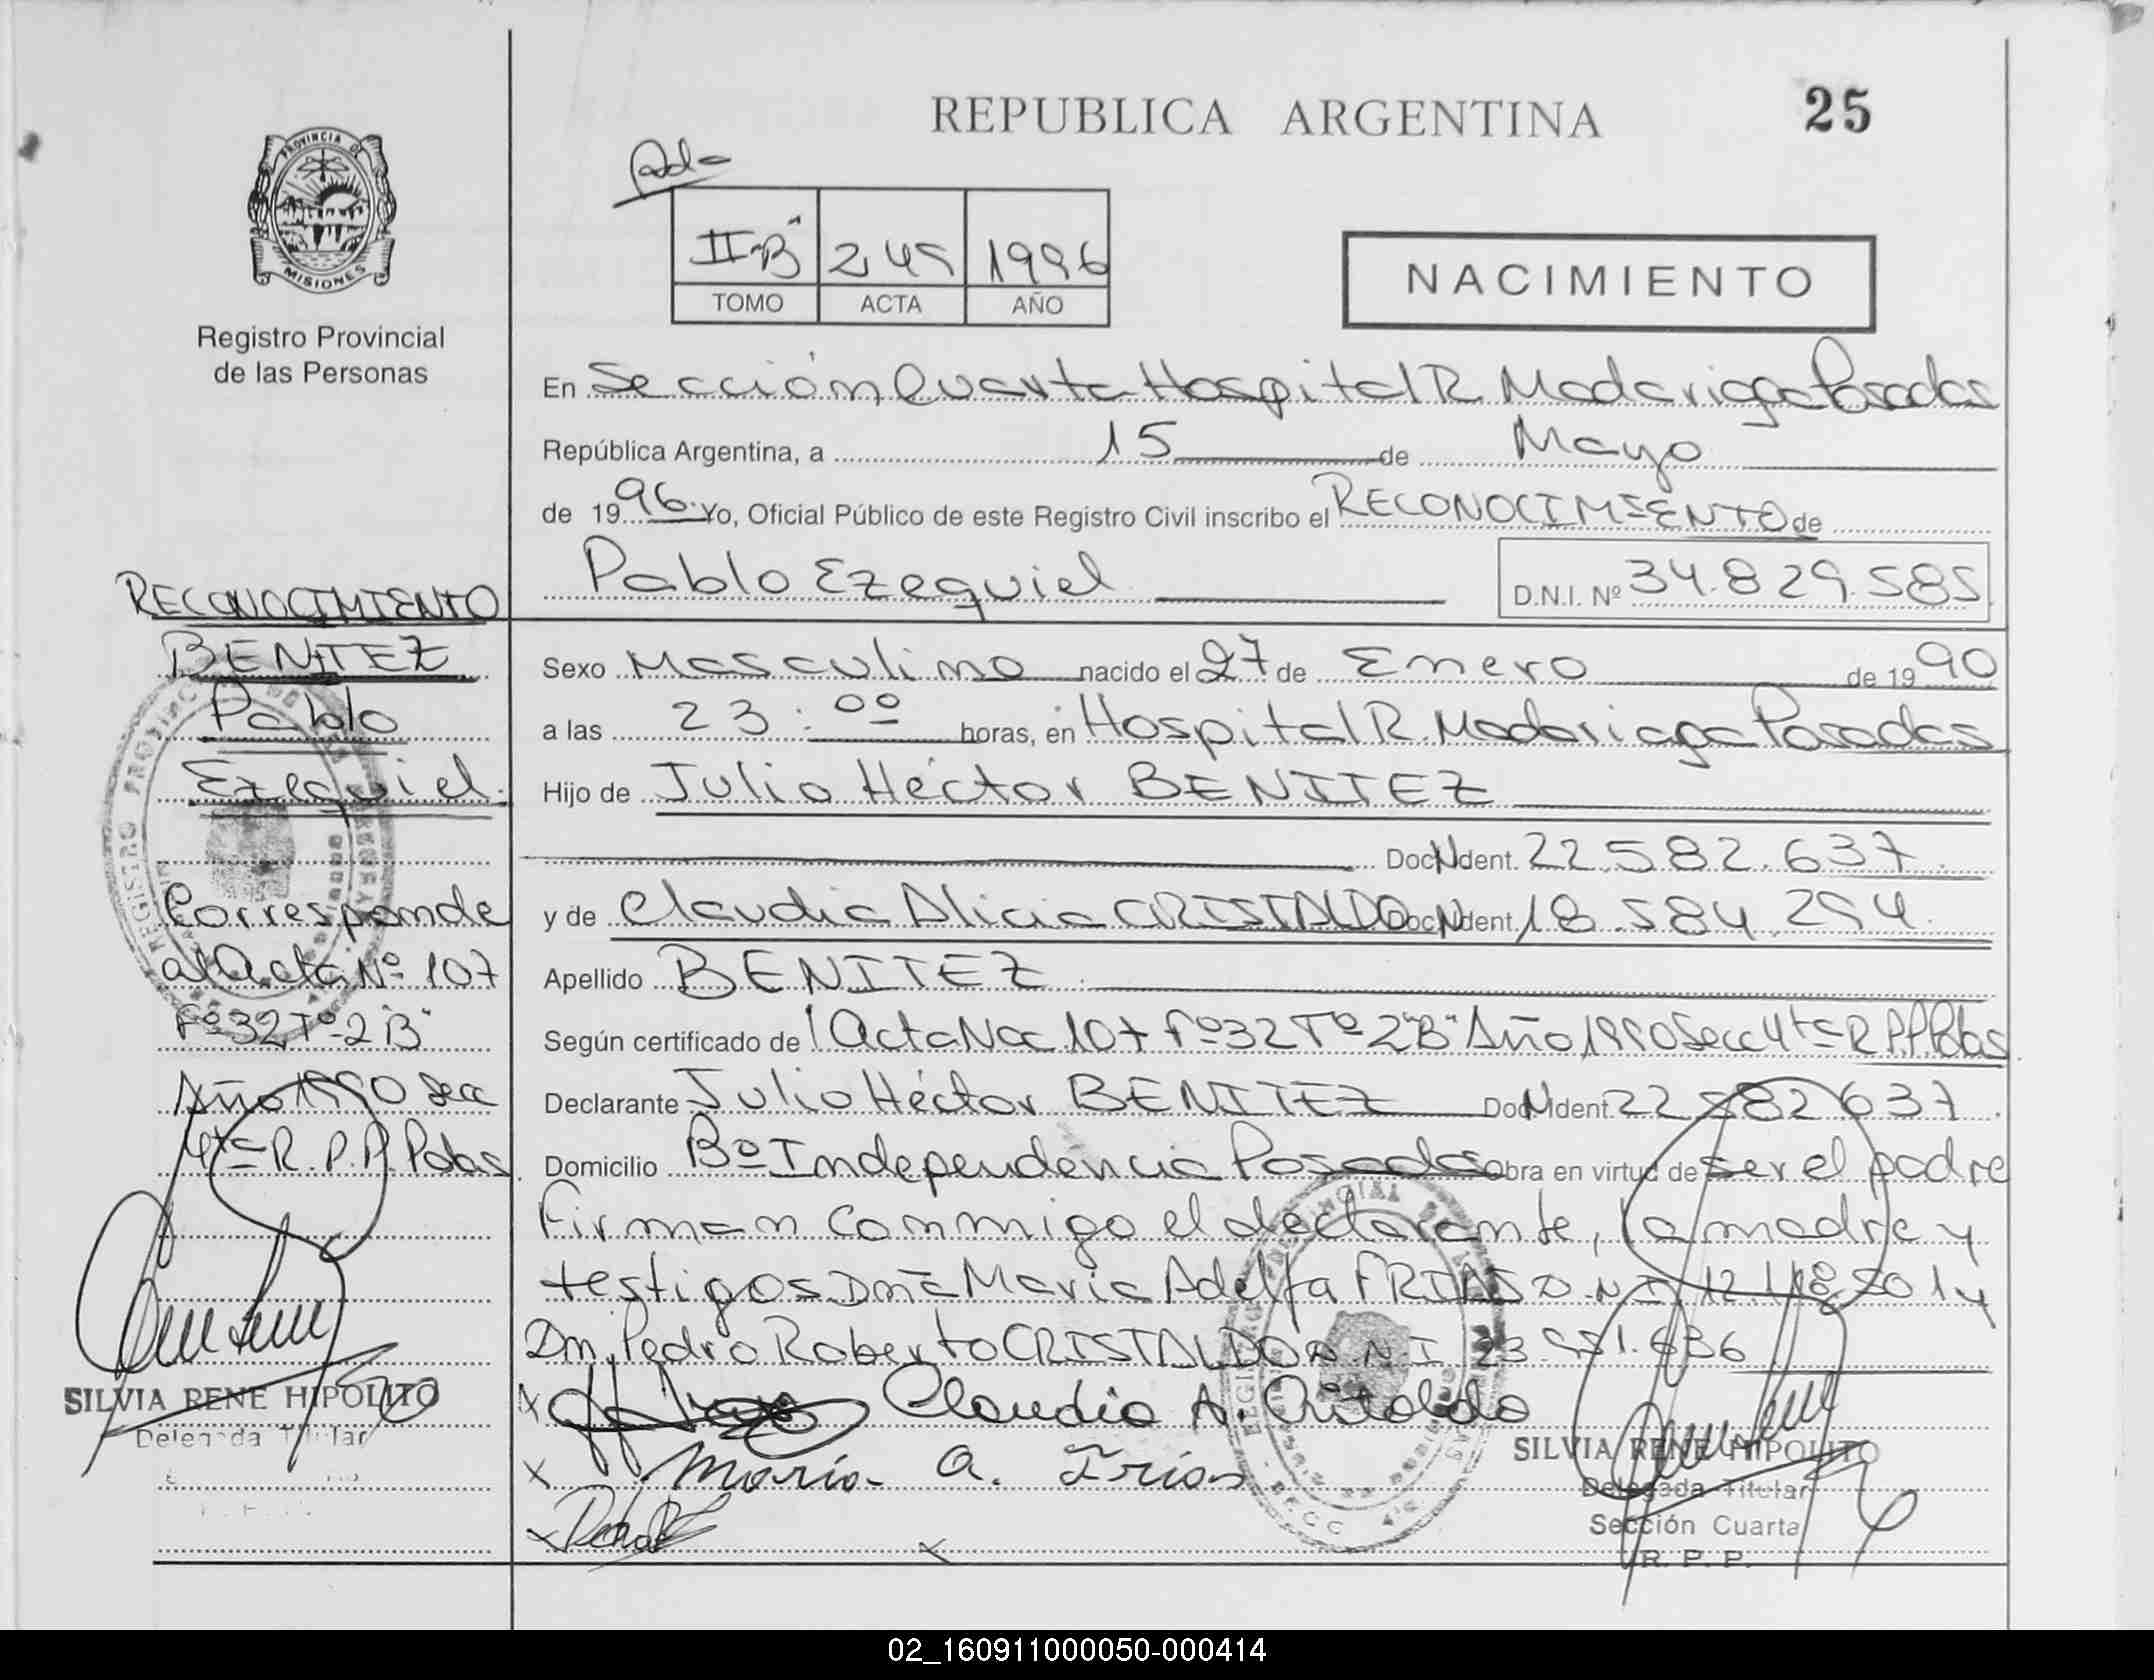 REPUBLICA ARGENTINA
25
PROVINCIA DE
MISIONES
Registro Provincial
de las Personas
Ad-
II-"B" 245 1996
TOMO ACTA AÑO
NACIMIENTO
En Sección Cuarta Hospital R. Madariaga Posadas
República Argentina, a 15 de Mayo
de 1996. Yo, Oficial Público de este Registro Civil inscribo el RECONOCIMIENTO de
Pablo Ezequiel D.N.I. Nº 34.829.585
RECONOCIMIENTO
BENITEZ
Pablo
Ezequiel.
Corresponde
al Acta Nº 107
Fº 32 Tº 2"B"
Año 1990 Secc
4ta R.P.P. Pdas
SILVIA RENE HIPOLITO
Delegada Titular
Sexo Masculino nacido el 27 de Enero de 1990
a las 23:00 horas, en Hospital R. Madariaga Posadas
Hijo de Julio Héctor BENITEZ
Doc N Ident. 22.582.637.
y de Claudia Alicia CRISTALDO Doc N Ident. 18.584.294.
Apellido BENITEZ.
Según certificado de Acta Nac 107 Fº 32 Tº 2"B" Año 1990 Secc 4ta R.P.P. Pdas
Declarante Julio Héctor BENITEZ Doc N Ident. 22 582 637.
Domicilio Bº Independencia Posadas obra en virtud de ser el padre
Firman conmigo el declarante, la madre y
testigos Dña María Adelfa FRIAS D.N.I. 12.118.501 y
Dn. Pedro Roberto CRISTALDO D.N.I. 23.551.636
x Claudia A. Cristaldo
x María A. Frias
x
x
SILVIA RENE HIPOLITO
Delegada Titular
Sección Cuarta
R. P. P.
02_160911000050-000414